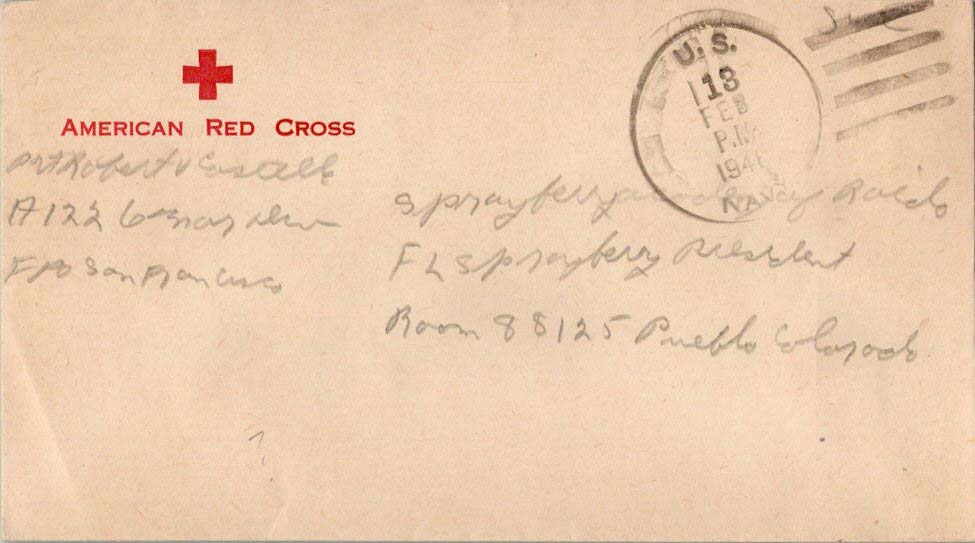 AMERICAN RED CROSS
Pvt Robert V
A 122 6 mar
FPO San Francisco
U.S.
13
FEB
P.M.
194
NAVY
Sprayberry academy Radio
F L Sprayberry President
Room 88125 Pueblo Colorado